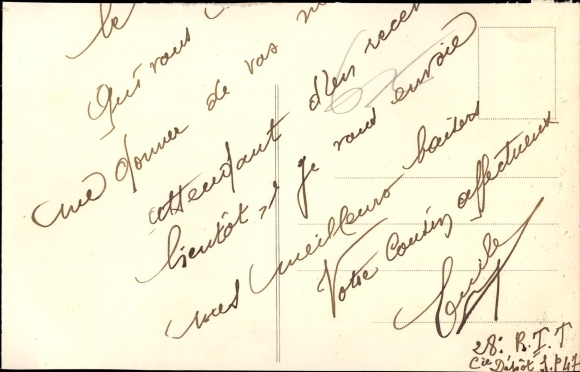 le
Qui vous
me donner de vos
attendant d'en recev
bientôt, je vous envoie
mes meilleurs baisers
Votre Cousin affectueux
Emile
28e R.I.T
Cie Dépôt S.P 47